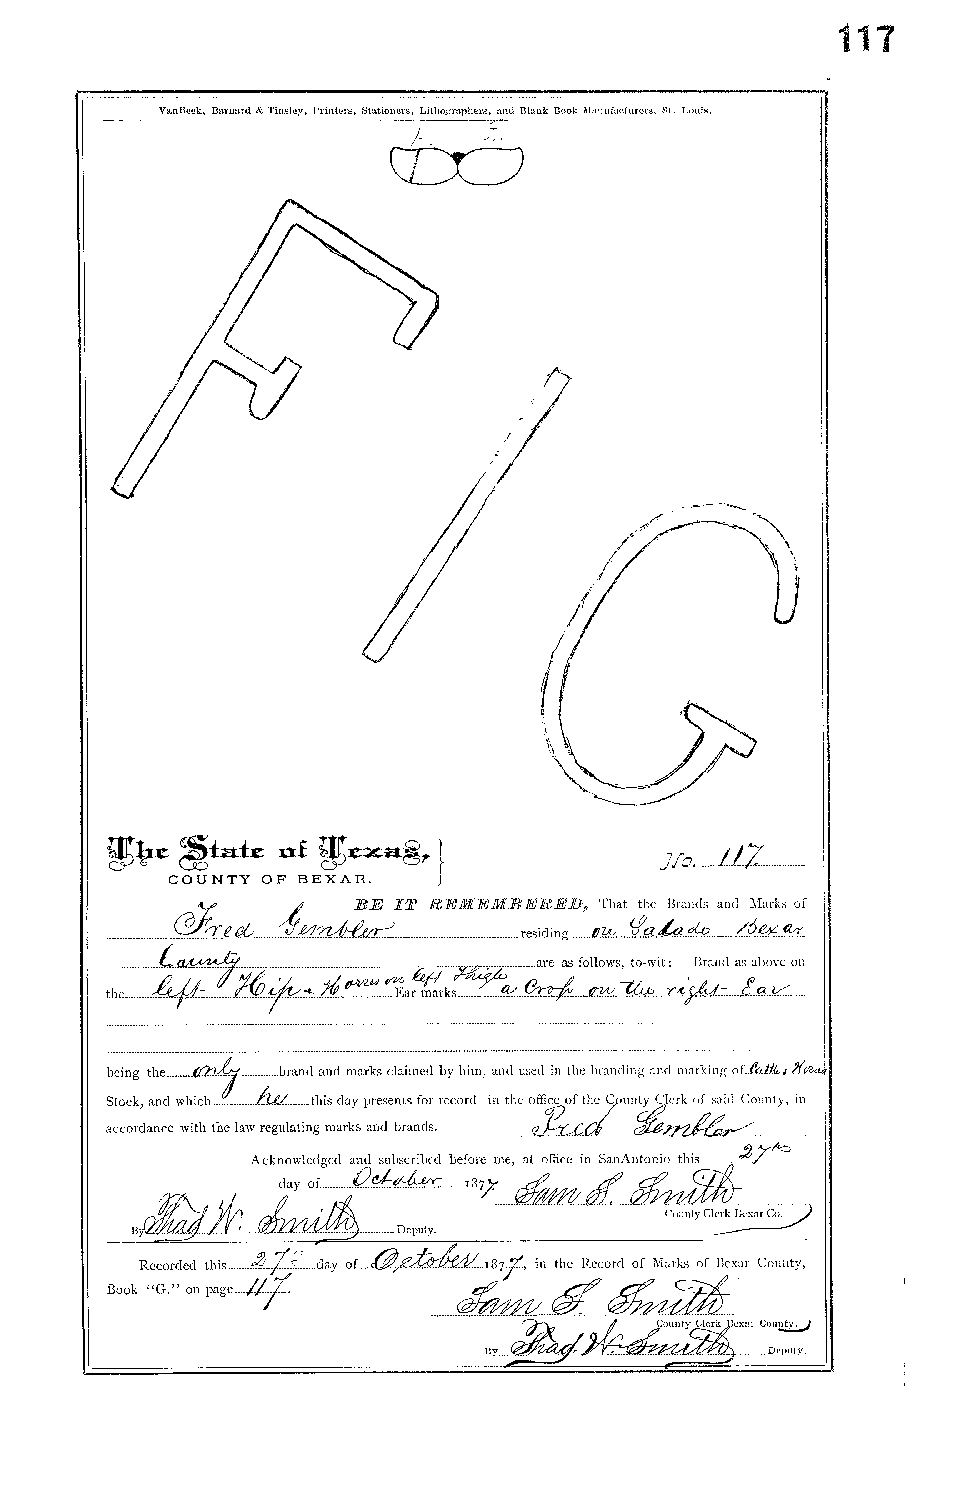 117
VanBeek, Barnard & Tinsley, Printers, Stationers, Lithographers, and Blank Book Manufacturers, St. Louis.
F I G
The State of Texas,
COUNTY OF BEXAR.
No. 117
BE IT REMEMBERED, That the Brands and Marks of
Fred Gembler residing on Salado Bexar
County are as follows, to-wit: Brand as above on
the left Hip & Horses on left Thigh Ear marks a Crop on the right Ear
being the only brand and marks claimed by him, and used in the branding and marking of Cattle & Horses
Stock, and which he this day presents for record in the office of the County Clerk of said County, in
accordance with the law regulating marks and brands. Fred Gembler
Acknowledged and subscribed before me, at office in SanAntonio this 27th
day of October 1877 Sam S. Smith
County Clerk Bexar Co.
By Thad W. Smith Deputy.
Recorded this 27th day of October 1877, in the Record of Marks of Bexar County,
Book "G." on page 117.
Sam S. Smith
County Clerk Bexar County.
By Thad. W. Smith Deputy.